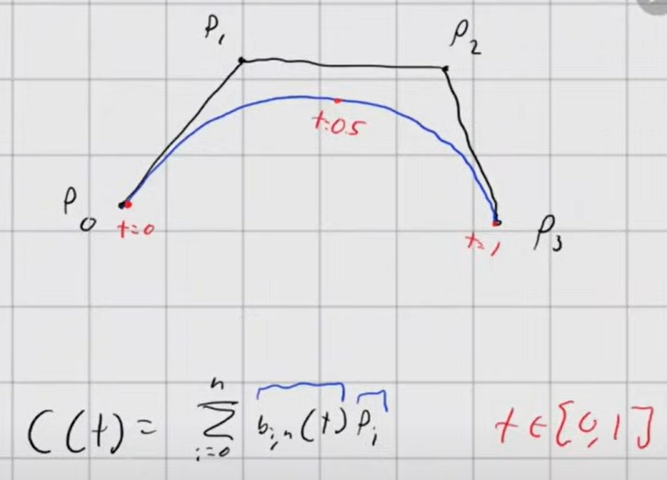 P₁ P₂
t=0.5
P₀ P₃
t=0 t=1
C(t) = ∑ᵢ₌₀ⁿ bᵢ,ₙ(t) Pᵢ t ∈ [0,1]